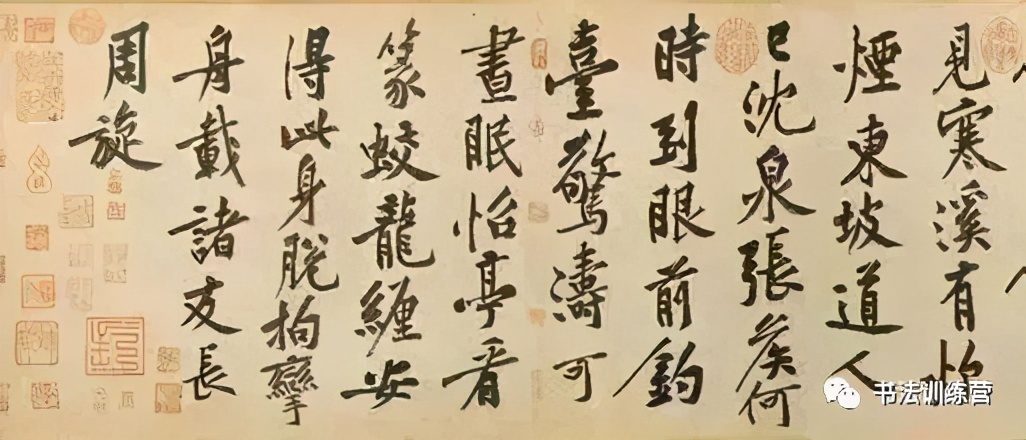 見寒溪有炊
煙東坡道人
已沈泉張侯何
時到眼前釣
臺驚濤可
晝眠怡亭看
篆蛟龍纏安
得此身脱拘攣
舟載諸友長
周旋
书法训练营